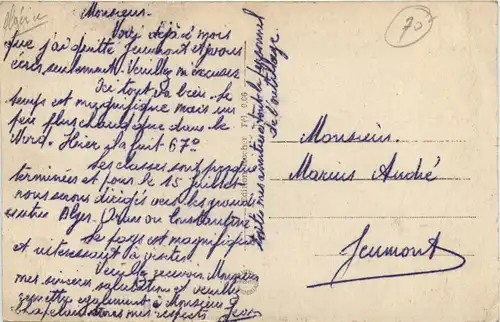 Algérie
70
Monsieur.
Voici déjà 2 mois
que j'ai quitté Jeumont et je vous
écris seulement. Veuillez m'excuser
Ici tout va bien. Le
temps est magnifique mais un
peu plus chaud que dans le
Nord. Hier il a fait 67°
Les classes sont presque
terminées et pour le 15 juillet
nous serons dirigés vers les grands
centres Alger Oran ou Constantine
Le pays est magnifique
et intéressant à visiter.
Veuillez recevoir Monsieur
mes sincères salutations et veuillez
également à Monsieur
Chapelain mes respects
toutes mes amitiés à tout le personnel
de l'outillage
Monsieur
Marius André
Jeumont